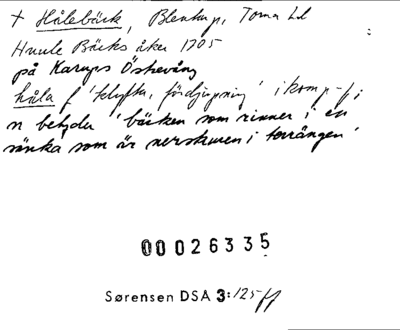 + Hålebäck, Blentarp, Torna hd
Huule Bäcks åker 1705
på Karups Östevång
håla f 'klyfta, fördjupning' i komp-f;
n betyder 'bäcken som rinner i en
sänka som är nerskuren i terrängen'
00026335
Sørensen DSA 3:125 ff